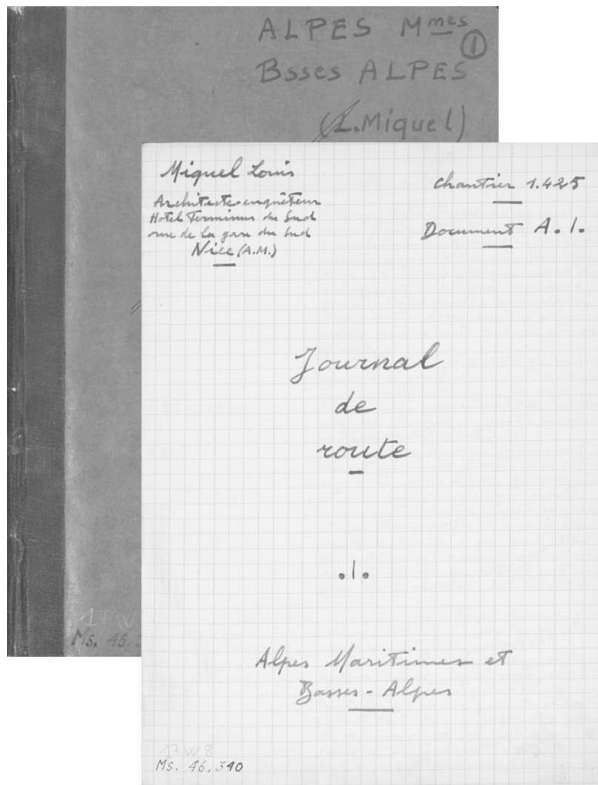 ALPES Mmes
1
Bsses ALPES
(L. Miquel)
Ms. 46.
Miquel Louis
Architecte-enquêteur
Hotel Terminus du Sud
rue de la gare du Sud
Nice (A.M.)
Chantier 1.425
Document A.1.
Journal
de
route
.1.
Alpes Maritimes et
Basses-Alpes
Ms. 46.340